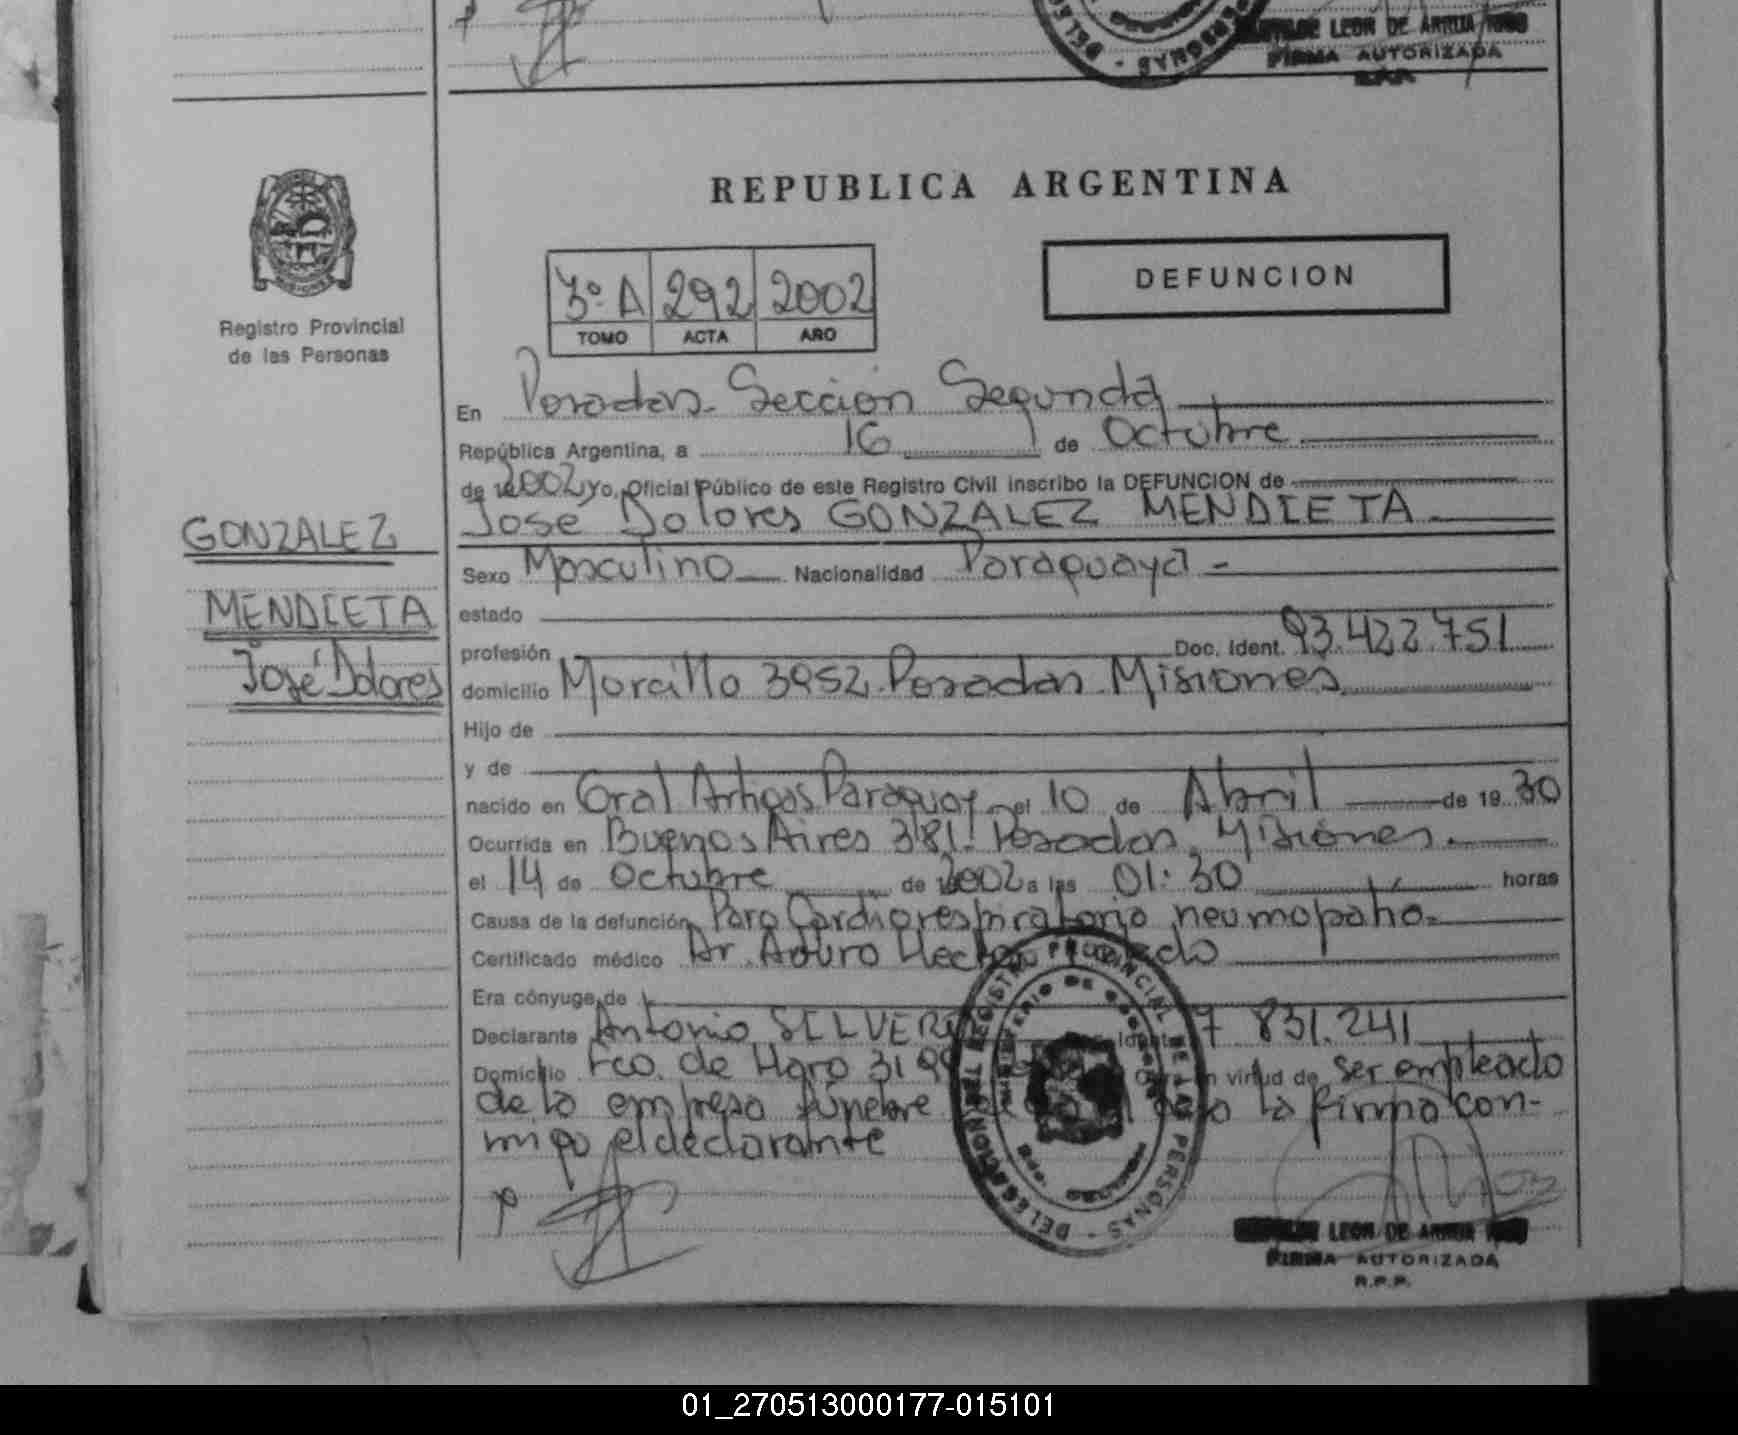 LEON DE ARRUA
FIRMA AUTORIZADA
R.P.P.
REPUBLICA ARGENTINA
3º A 292 2002
TOMO ACTA AÑO
DEFUNCION
Registro Provincial
de las Personas
En Posadas Sección Segunda
República Argentina, a 16 de Octubre
de 2002 Yo, Oficial Público de este Registro Civil inscribo la DEFUNCION de
José Dolores GONZALEZ MENDIETA
GONZALEZ
MENDIETA
José Dolores
Sexo Masculino Nacionalidad Paraguaya
estado
profesión Doc. Ident. 93.422.751
domicilio Morcillo 3952 Posadas Misiones
Hijo de
y de
nacido en Gral Artigas Paraguay el 10 de Abril de 1930
Ocurrida en Buenos Aires 381 Posadas, Misiones
el 14 de Octubre de 2002 a las 01:30 horas
Causa de la defunción Paro Cardiorespiratorio neumopatia
Certificado médico Dr. Arturo
Era cónyuge de
Declarante Antonio 7 831.241
Domicilio Fco. de Haro en virtud de ser empleado
de la empresa fúnebre la firma con-
migo el declarante
REGISTRO PROVINCIAL DE LAS PERSONAS - DELEGACION
LEON DE ARRUA
FIRMA AUTORIZADA
R.P.P.
01_270513000177-015101